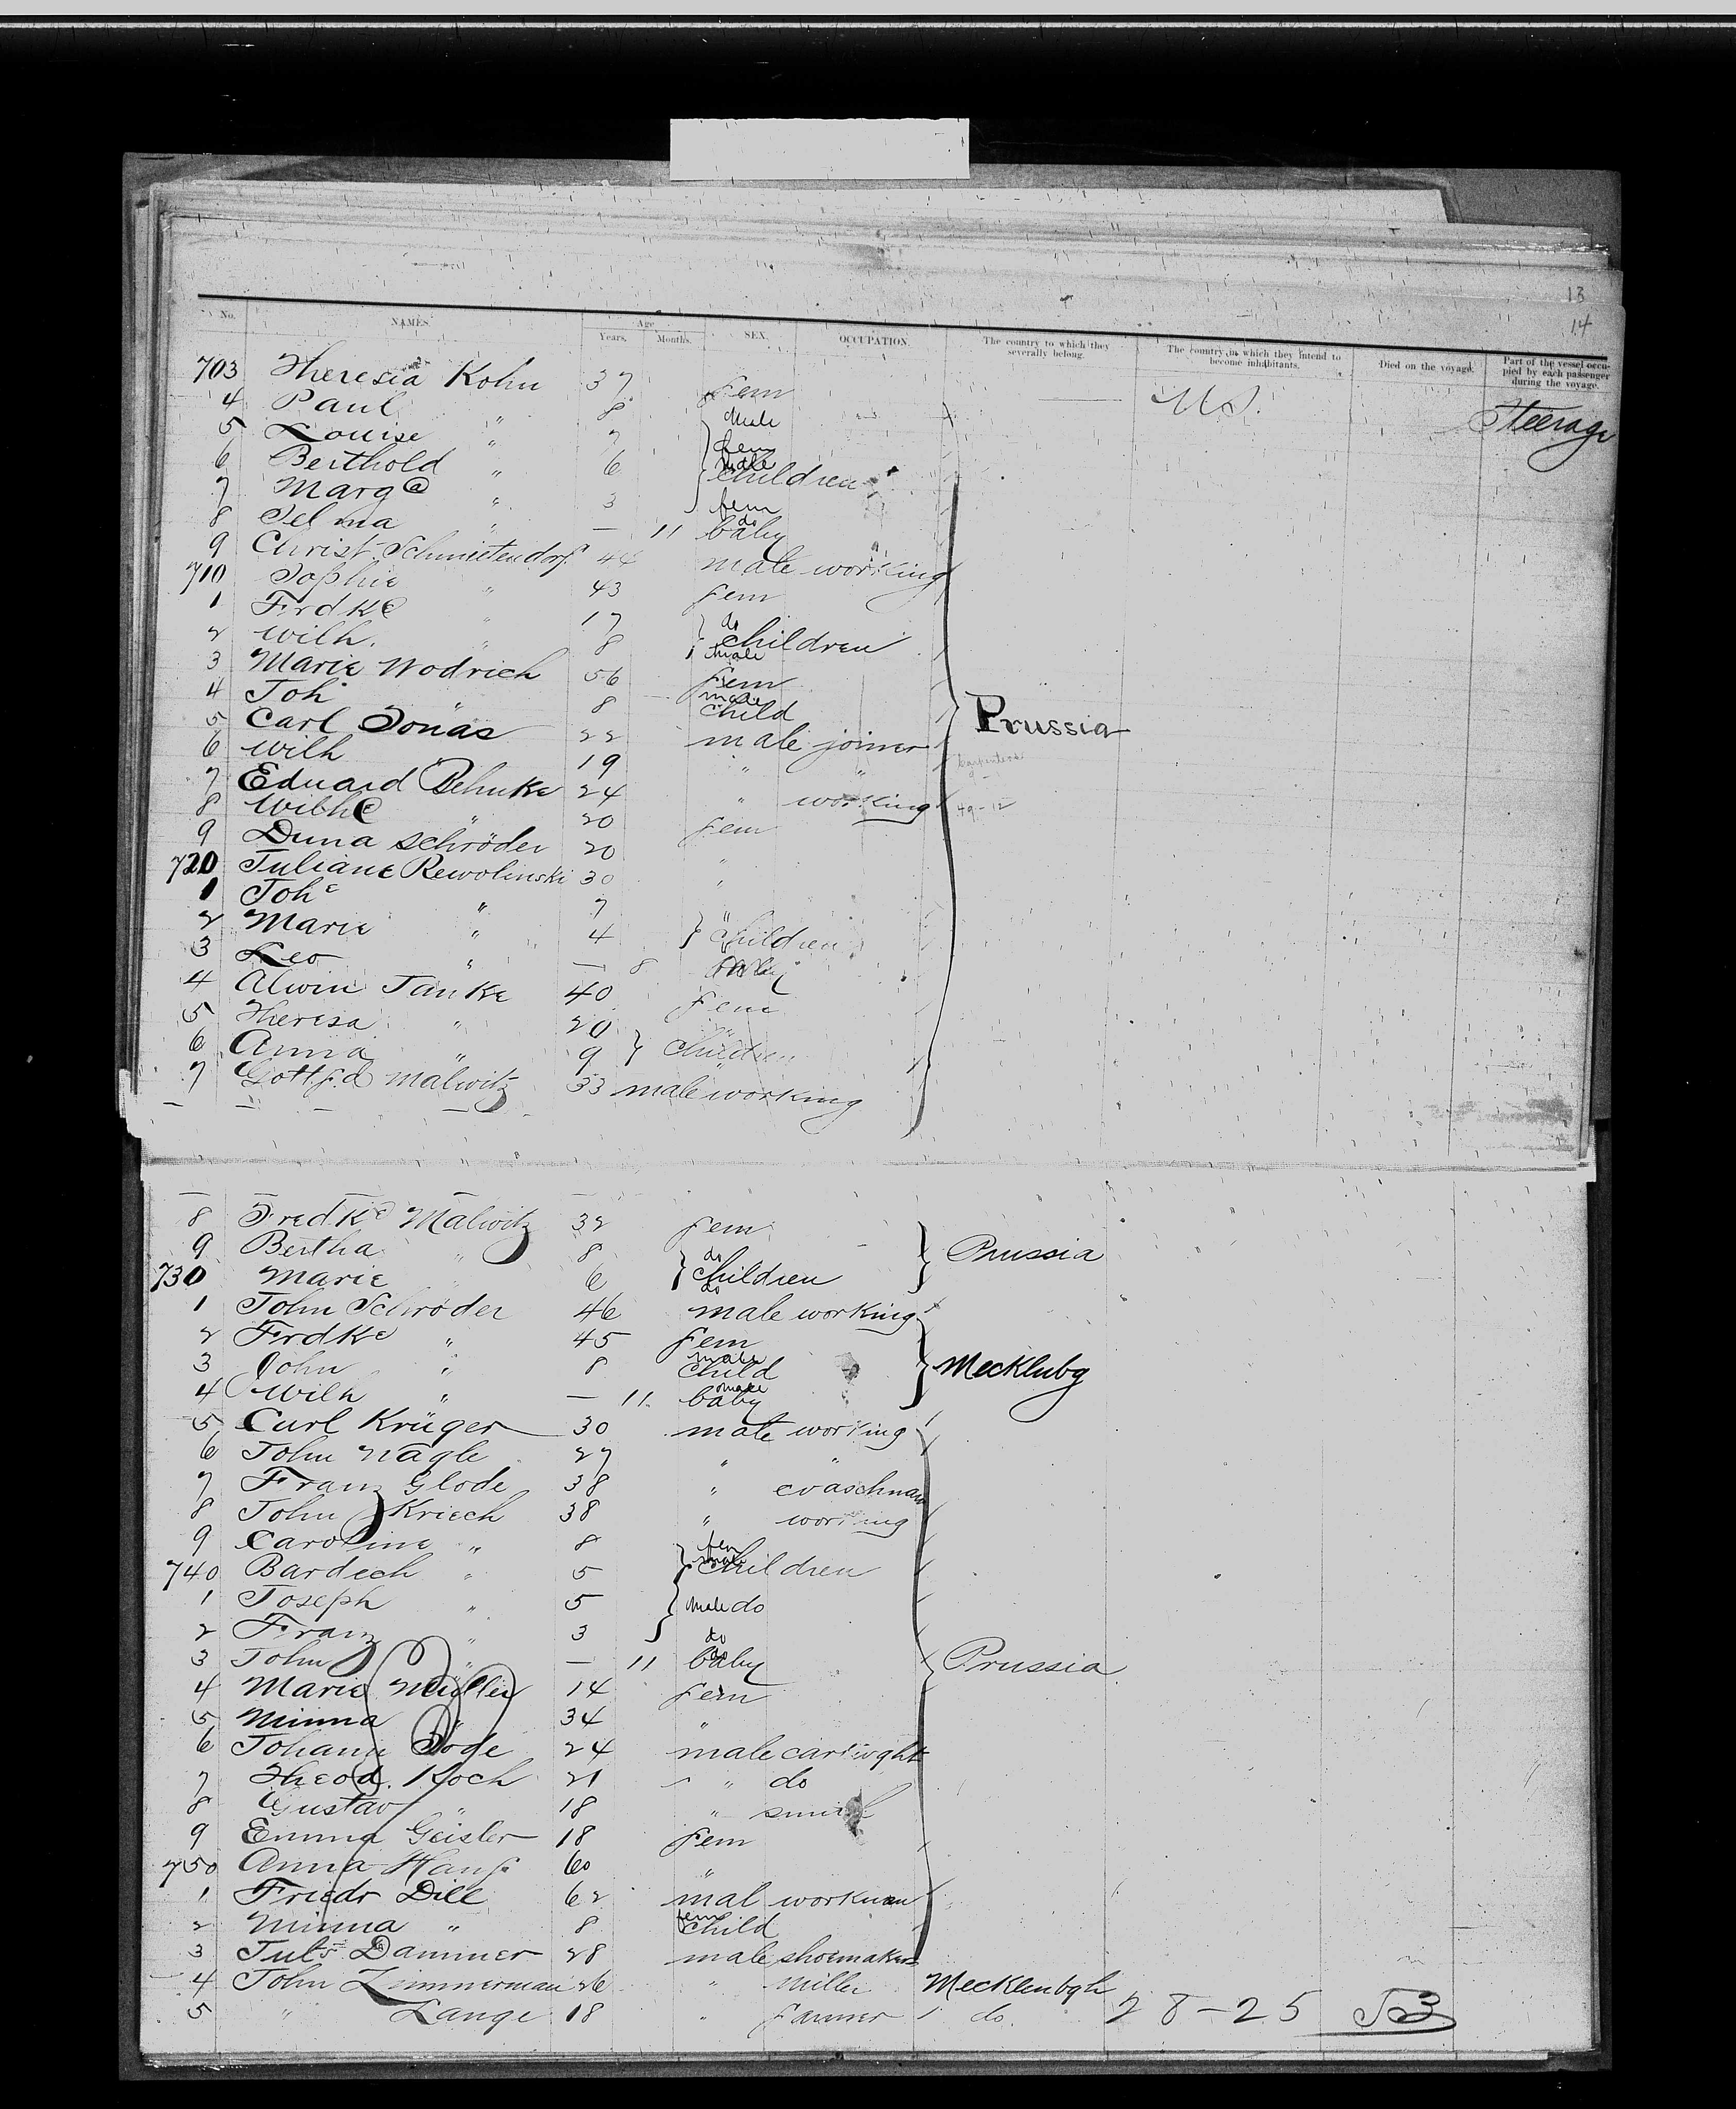 13
14
No. NAMES. Age Years. Months. SEX. OCCUPATION. The country to which they severally belong. The country in which they intend to become inhabitants. Died on the voyage. Part of the vessel occupied by each passenger during the voyage.
703 Theresia Kohn 37 fem U.S. Steerage
4 Paul " 8 male
5 Louise " 7 fem
6 Berthold " 6 male children
7 Marg a " 3 fem
8 Selma " — 11 do baby
9 Christ. Schmittendorf 44 male working
710 Sophie " 43 fem
1 Frdke " 17 do children
2 Wilh. " 8 male
3 Marie Wodrich 56 fem
4 Joh " 8 male child
5 Carl Jonas 22 male joiner Prussia
6 Wilh " 19 " "
7 Eduard Behnke 24 " working
8 Wilh e " 20 fem
9 Duna Schröder 20 "
720 Juliane Rewolinski 30 "
1 Joh e " 7
2 Marie " 4 " children
3 Leo " — 8 baby
4 Alwin Janke 40 fem
5 Theresa " 20 "
6 Anna " 9 children
7 Gottfd Malwitz 33 male working
8 Fredke Malwitz 32 fem
9 Bertha " 8 do children Prussia
730 Marie " 6 do
1 John Schröder 46 male working
2 Frdke " 45 fem
3 John " 8 male child Mecklubg
4 Wilh " — 11 male baby
5 Curl Krüger 30 male working
6 John Nagle 27 " "
7 Franz Glode 38 "
8 John Kriech 38 " working
9 Caroline " 8 fem children
740 Bardech " 5 male
1 Joseph " 5 male do
2 Franz " 3 do
3 John " — 11 do baby Prussia
4 Marie Müller 14 fem
5 Minna " 34 "
6 Johann Bode 24 male cartwght
7 Theod. Koch 21 " do
8 Gustav " 18 " smith
9 Emma Geisler 18 fem
750 Anna 60 "
1 Friedr Dill 62 mal workman
2 Minna " 8 fem child
3 Juls Dammer 28 male shoemaker
4 John Zimmerman 26 " Miller Mecklenbgh
5 " Lange 18 " farmer do. 28-25 53